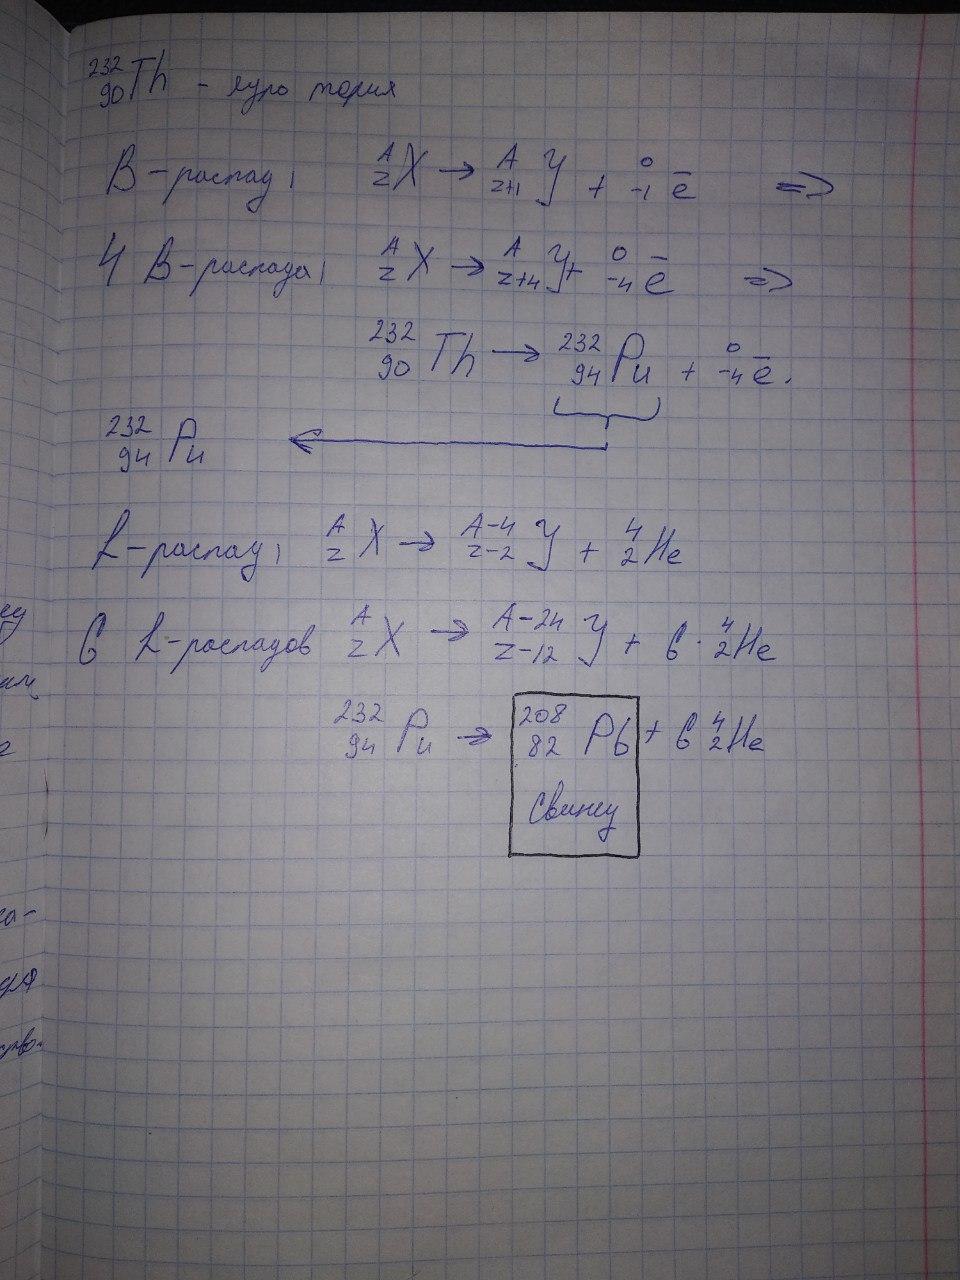 ²³²₉₀Th - ядро тория
β-распад, ᴬ_ZX → ᴬ_Z+1Y + ⁰₋₁ē =>
4 β-распада, ᴬ_ZX → ᴬ_Z+4Y + ⁰₋₄ē =>
²³²₉₀Th → ²³²₉₄Pu + ⁰₋₄ē.
²³²₉₄Pu ←
α-распад, ᴬ_ZX → ᴬ⁻⁴_Z-2Y + ⁴₂He
6 α-распадов ᴬ_ZX → ᴬ⁻²⁴_Z-12Y + 6 · ⁴₂He
²³²₉₄Pu → ²⁰⁸₈₂Pb + 6 ⁴₂He
Свинец